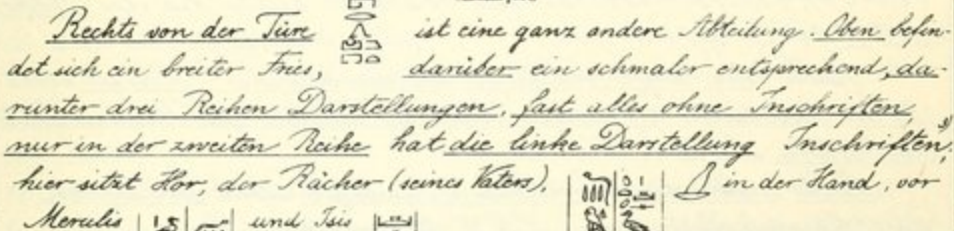 Rechts von der Türe ist eine ganz andere Abteilung. Oben befin-
det sich ein breiter Fries, darüber ein schmaler entsprechend, da-
runter drei Reihen Darstellungen, fast alles ohne Inschriften,
nur in der zweiten Reihe hat die linke Darstellung Inschriften,
hier sitzt Hor, der Rächer (seines Vaters), in der Hand, vor
Merulis und Isis